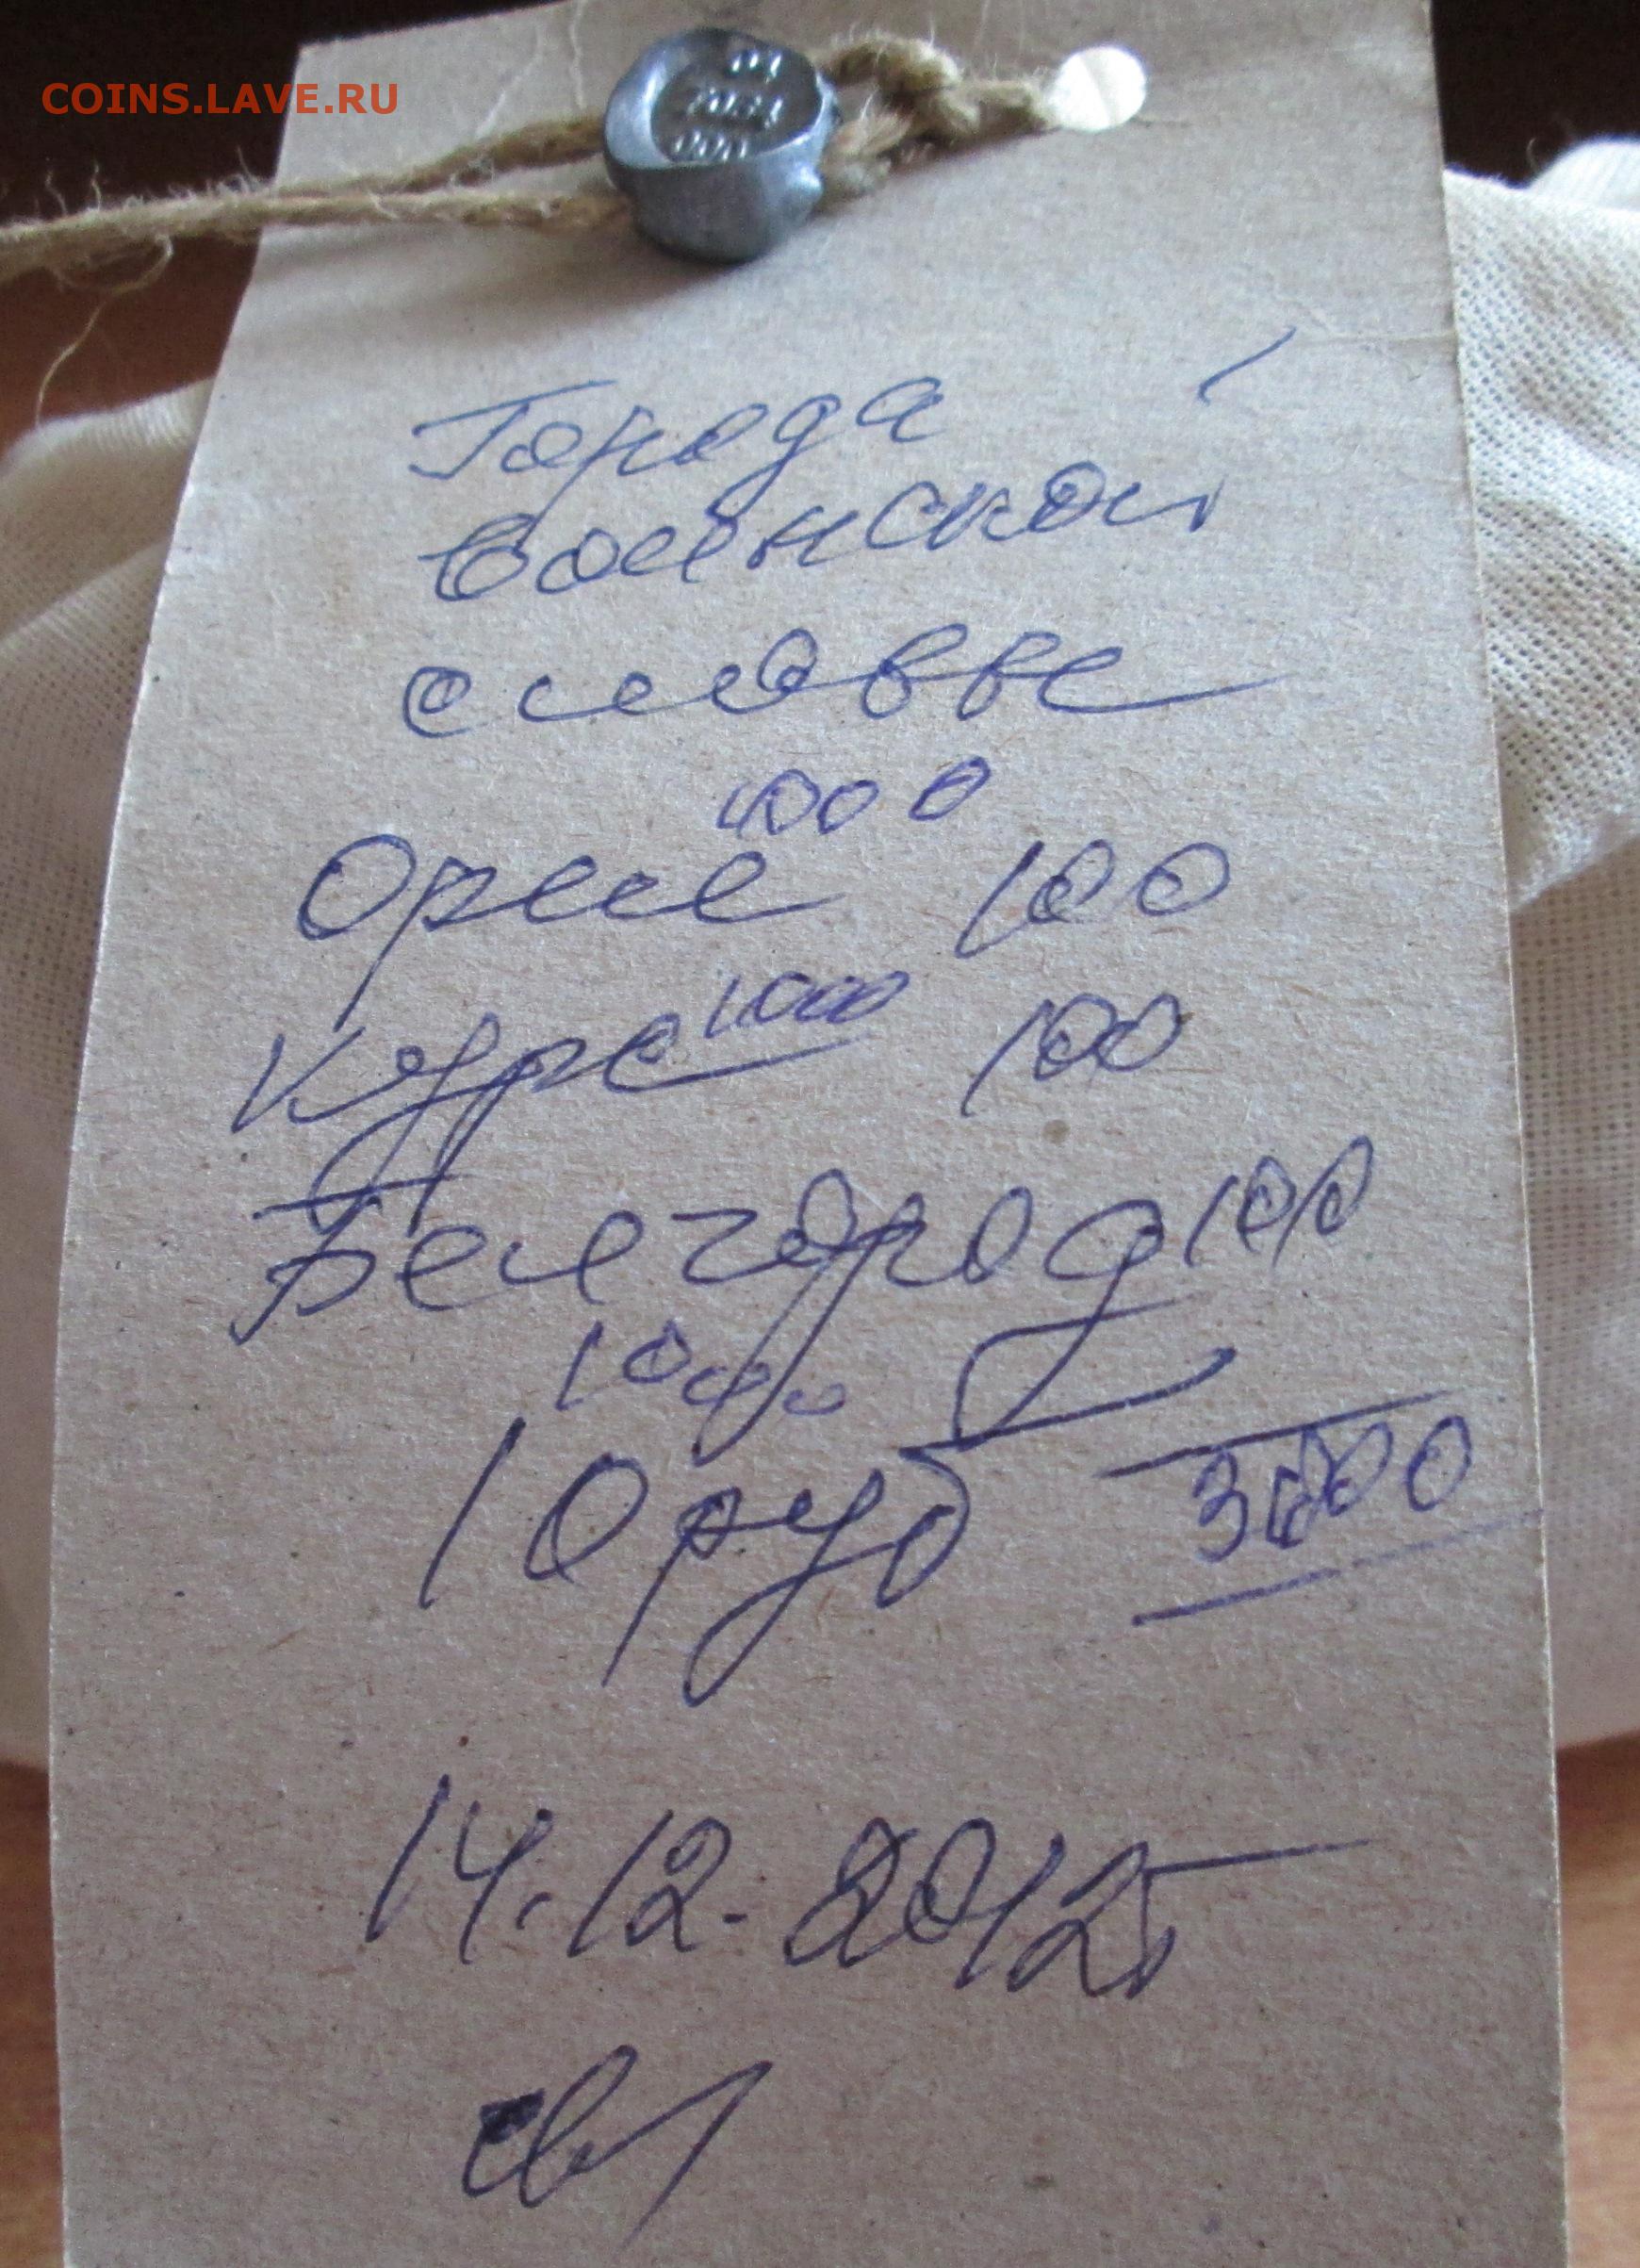 COINS.LAVE.RU
Города
воинской
славы
1000
Орел 100
1000
Курс 100
Белгород 100
1000
10 руб 3000
14.12.2012г